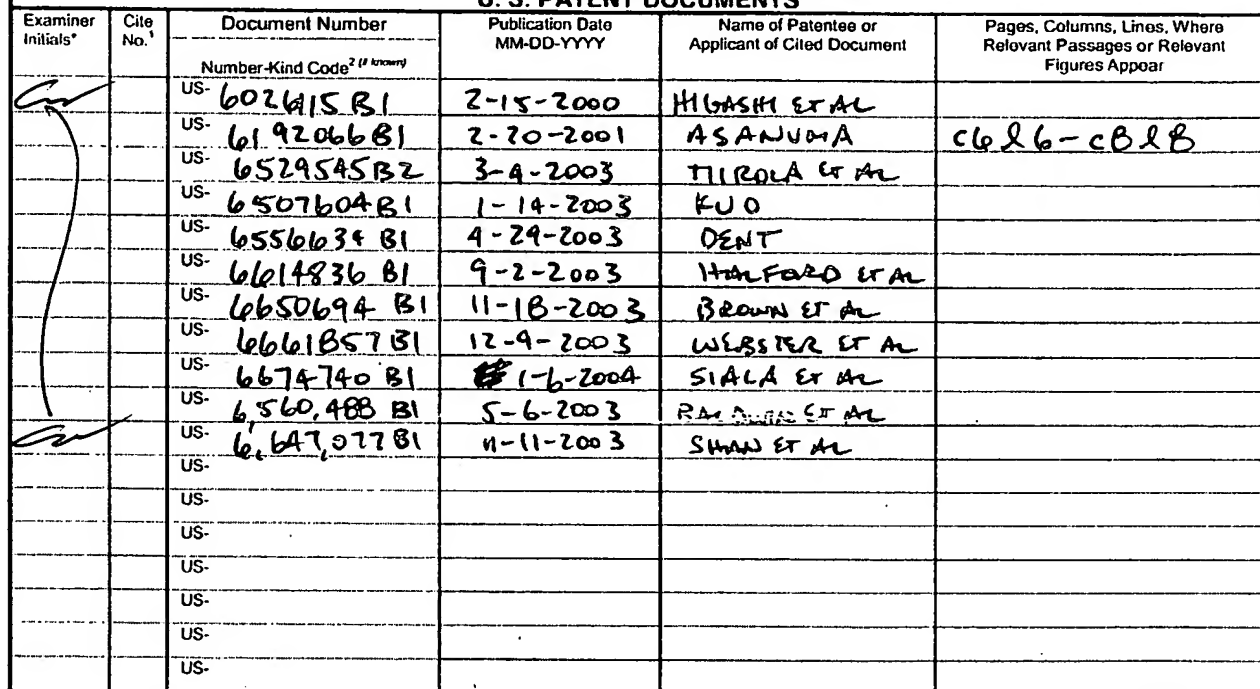 U. S. PATENT DOCUMENTS
Examiner Initials* Cite No.¹ Document Number Publication Date MM-DD-YYYY Name of Patentee or Applicant of Cited Document Pages, Columns, Lines, Where Relevant Passages or Relevant Figures Appear
Number-Kind Code² (if known)
US- 6026115 B1 2-15-2000 HIGASHI ET AL
US- 6192066 B1 2-20-2001 ASANUMA C6 l 6 - C8 l 8
US- 6529545 B2 3-4-2003 TIIROLA ET AL
US- 6507604 B1 1-14-2003 KUO
US- 6556634 B1 4-29-2003 DENT
US- 6614836 B1 9-2-2003 HALFORD ET AL
US- 6650694 B1 11-18-2003 BROWN ET AL
US- 6661857 B1 12-9-2003 WEBSTER ET AL
US- 6674740 B1 1-6-2004 SIALA ET AL
US- 6,560,488 B1 5-6-2003 ET AL
US- 6,647,077 B1 11-11-2003 SHAN ET AL
US-
US-
US-
US-
US-
US-
US-